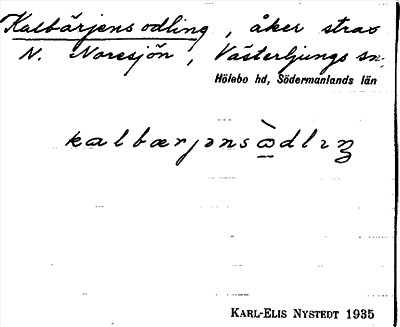 Kalbärjens odling, åker strax
N. Noresjön, Västerljungs sn.
Hölebo hd, Södermanlands län
kalbærjənsòdlıŋ
KARL-ELIS NYSTEDT 1935